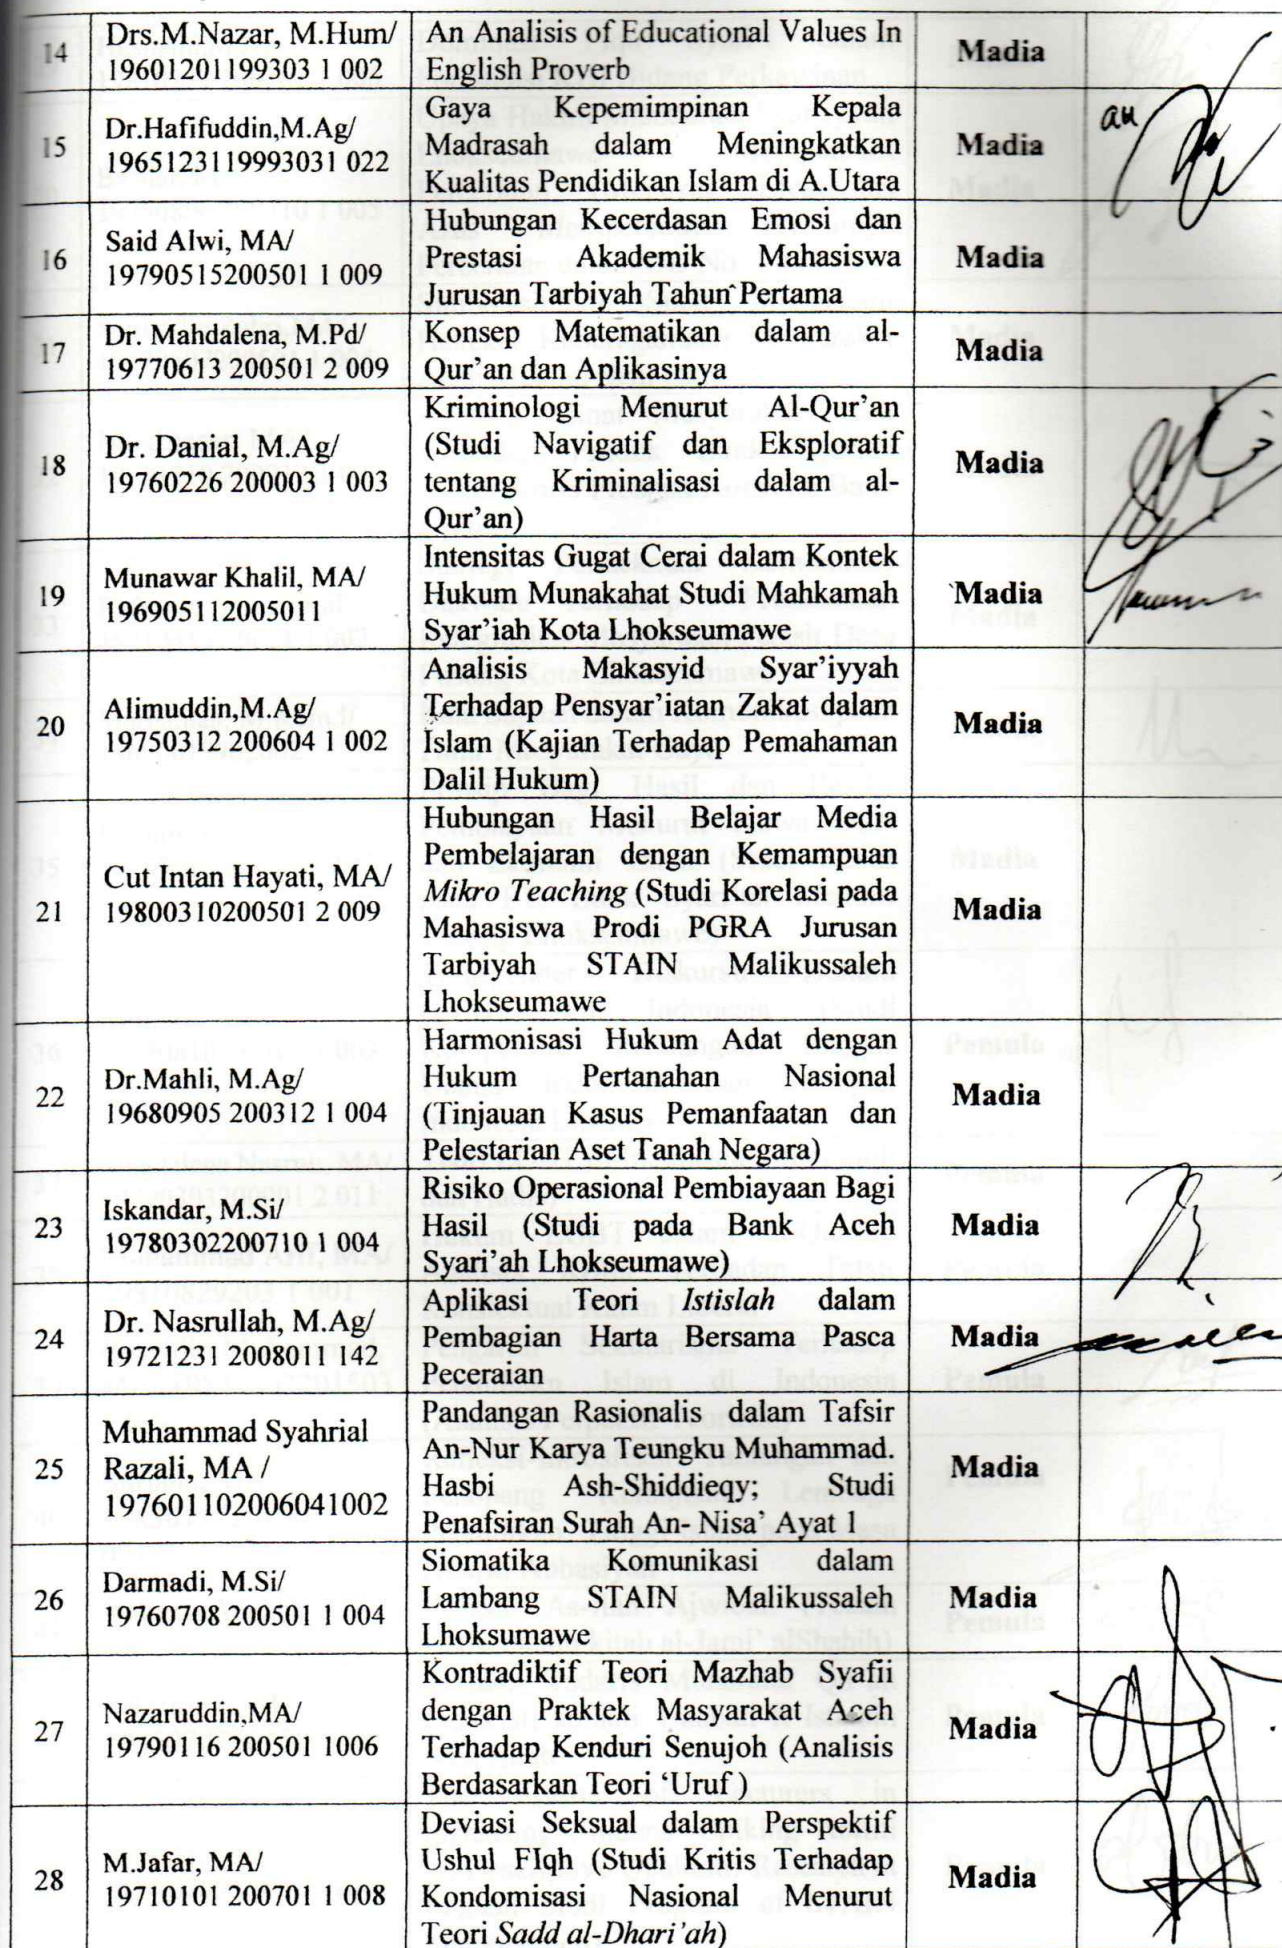 14
Drs.M.Nazar, M.Hum/
19601201199303 1 002
An Analisis of Educational Values In
English Proverb
Madia
15
Dr.Hafifuddin,M.Ag/
1965123119993031 022
Gaya Kepemimpinan Kepala
Madrasah dalam Meningkatkan
Kualitas Pendidikan Islam di A.Utara
Madia
an
16
Said Alwi, MA/
19790515200501 1 009
Hubungan Kecerdasan Emosi dan
Prestasi Akademik Mahasiswa
Jurusan Tarbiyah Tahun Pertama
Madia
17
Dr. Mahdalena, M.Pd/
19770613 200501 2 009
Konsep Matematikan dalam al-
Qur'an dan Aplikasinya
Madia
18
Dr. Danial, M.Ag/
19760226 200003 1 003
Kriminologi Menurut Al-Qur'an
(Studi Navigatif dan Eksploratif
tentang Kriminalisasi dalam al-
Qur'an)
Madia
19
Munawar Khalil, MA/
196905112005011
Intensitas Gugat Cerai dalam Kontek
Hukum Munakahat Studi Mahkamah
Syar'iah Kota Lhokseumawe
Madia
20
Alimuddin,M.Ag/
19750312 200604 1 002
Analisis Makasyid Syar'iyyah
Terhadap Pensyar'iatan Zakat dalam
Islam (Kajian Terhadap Pemahaman
Dalil Hukum)
Madia
21
Cut Intan Hayati, MA/
19800310200501 2 009
Hubungan Hasil Belajar Media
Pembelajaran dengan Kemampuan
Mikro Teaching (Studi Korelasi pada
Mahasiswa Prodi PGRA Jurusan
Tarbiyah STAIN Malikussaleh
Lhokseumawe
Madia
22
Dr.Mahli, M.Ag/
19680905 200312 1 004
Harmonisasi Hukum Adat dengan
Hukum Pertanahan Nasional
(Tinjauan Kasus Pemanfaatan dan
Pelestarian Aset Tanah Negara)
Madia
23
Iskandar, M.Si/
19780302200710 1 004
Risiko Operasional Pembiayaan Bagi
Hasil (Studi pada Bank Aceh
Syari'ah Lhokseumawe)
Madia
24
Dr. Nasrullah, M.Ag/
19721231 2008011 142
Aplikasi Teori Istislah dalam
Pembagian Harta Bersama Pasca
Peceraian
Madia
25
Muhammad Syahrial
Razali, MA /
197601102006041002
Pandangan Rasionalis dalam Tafsir
An-Nur Karya Teungku Muhammad.
Hasbi Ash-Shiddieqy; Studi
Penafsiran Surah An- Nisa' Ayat 1
Madia
26
Darmadi, M.Si/
19760708 200501 1 004
Siomatika Komunikasi dalam
Lambang STAIN Malikussaleh
Lhoksumawe
Madia
27
Nazaruddin,MA/
19790116 200501 1006
Kontradiktif Teori Mazhab Syafii
dengan Praktek Masyarakat Aceh
Terhadap Kenduri Senujoh (Analisis
Berdasarkan Teori 'Uruf )
Madia
28
M.Jafar, MA/
19710101 200701 1 008
Deviasi Seksual dalam Perspektif
Ushul FIqh (Studi Kritis Terhadap
Kondomisasi Nasional Menurut
Teori Sadd al-Dhari'ah)
Madia